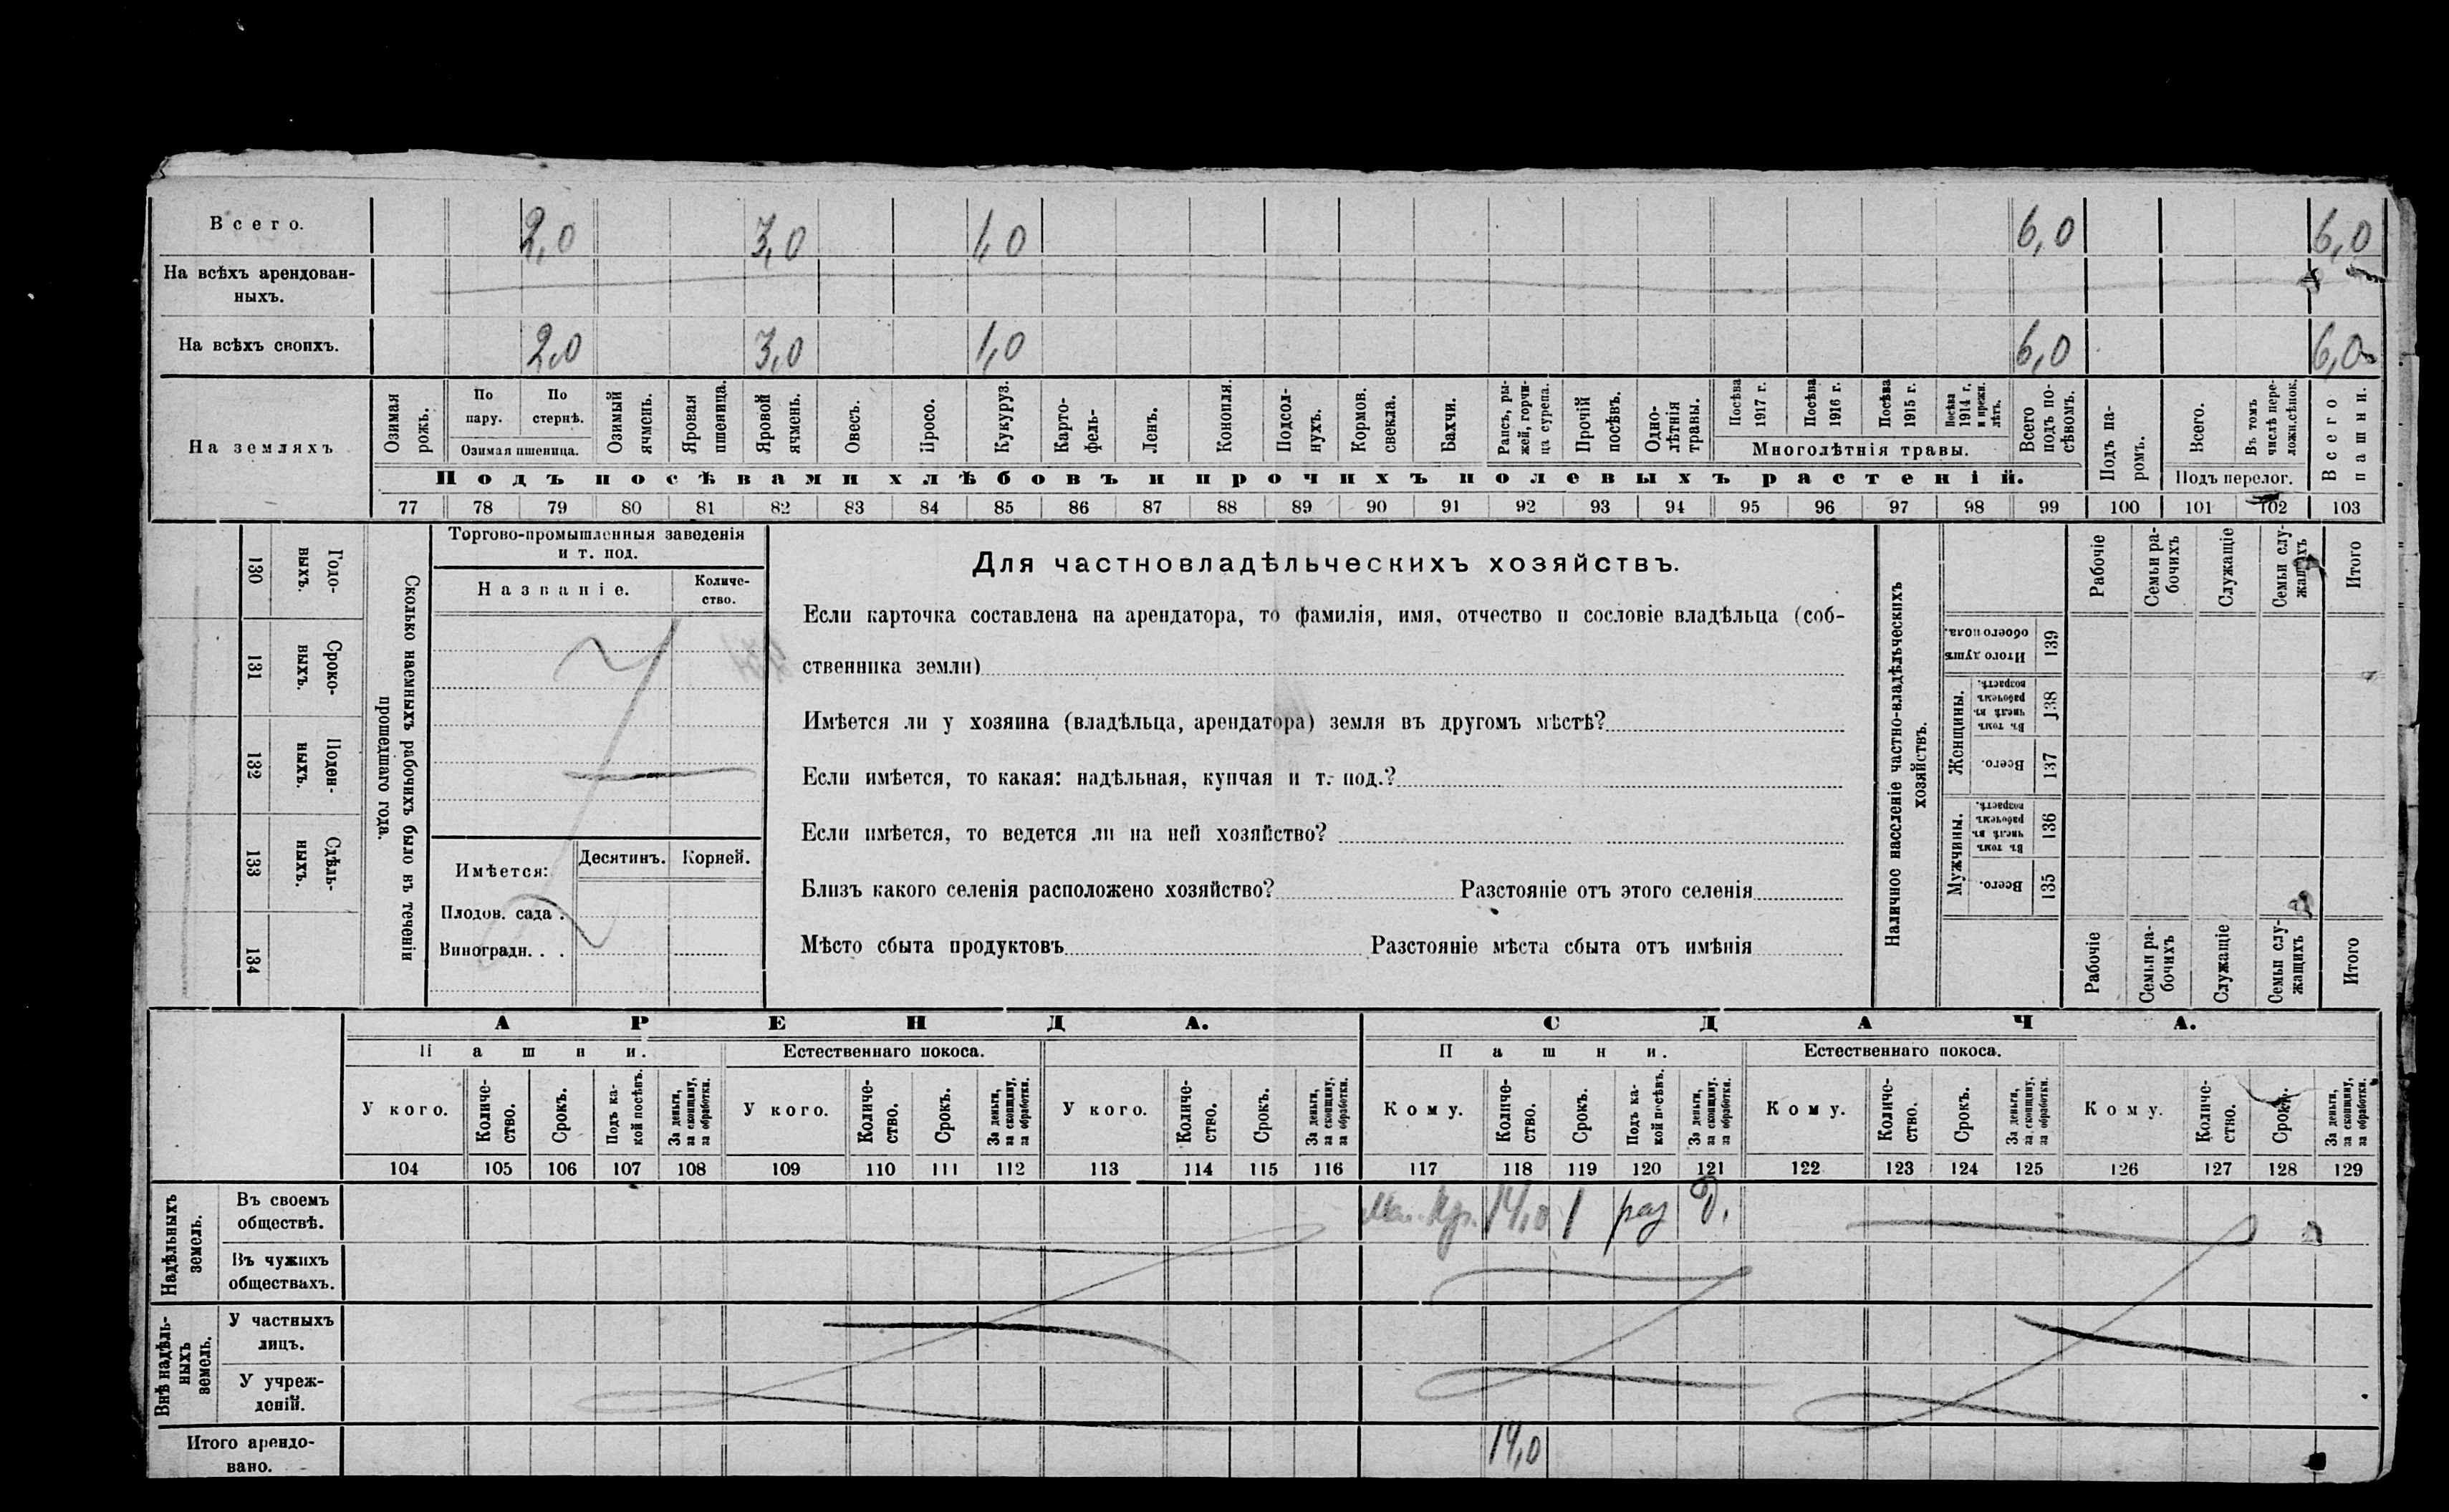 Всего. 2,0 3,0 1,0 6,0 6,0
На всѣхъ арендован-
ныхъ.
На всѣхъ своихъ. 2,0 3,0 1,0 6,0 6,0
На земляхъ
Озимая рожь.
По пару.
По стернѣ.
Озимая пшеница.
Озимый ячмень.
Яровая пшеница.
Яровой ячмень.
Овесъ.
Просо.
Кукуруз.
Карто-
фель-
Ленъ.
Конопля.
Подсол-
нухъ.
Кормов.
свекла.
Бахчи.
Рапсъ, ры-
жей, горчи-
ца сурепа.
Прочій
посѣвъ.
Одно-
лѣтнія
травы.
Посѣва
1917 г.
Посѣва
1916 г.
Посѣва
1915 г.
Посѣва
1914 г.
и прежн.
лѣтъ.
Многолѣтнія травы.
Всего
подъ по-
сѣвомъ.
Подъ па-
ромъ.
Всего.
Въ томъ
числѣ пере-
ложн.сѣнок.
Подъ перелог.
Всего
пашни.
Подъ посѣвами хлѣбовъ и прочихъ полевыхъ растеній.
77 78 79 80 81 82 83 84 85 86 87 88 89 90 91 92 93 94 95 96 97 98 99 100 101 102 103
130 Годо-
выхъ.
131 Сроко-
ныхъ.
132 Поден-
ныхъ.
133 Сдѣль-
ныхъ.
134
Сколько наемныхъ рабочихъ было въ теченіи
прошедшаго года.
Торгово-промышленныя заведенія
и т. под.
Названіе.
Количе-
ство.
Имѣется:
Десятинъ. Корней.
Плодов. сада .
Виноградн. . .
Для частновладѣльческихъ хозяйствъ.
Если карточка составлена на арендатора, то фамилія, имя, отчество и сословіе владѣльца (соб-
ственника земли)
Имѣется ли у хозяина (владѣльца, арендатора) земля въ другомъ мѣстѣ?
Если имѣется, то какая: надѣльная, купчая и т. под.?
Если имѣется, то ведется ли на ней хозяйство?
Близъ какого селенія расположено хозяйство? Разстояніе отъ этого селенія
Мѣсто сбыта продуктовъ Разстояніе мѣста сбыта отъ имѣнія
Наличное населеніе частно-владѣльческихъ
хозяйствъ.
Рабочіе
Семьи ра-
бочихъ
Служащіе
Семьи слу-
жащихъ
Итого
Итого душъ
обоего пола.
139
Женщины.
Въ томъ
числѣ въ
рабочемъ
возрастѣ.
138
Всего.
137
Мужчины.
Въ томъ
числѣ въ
рабочемъ
возрастѣ.
136
Всего.
135
Рабочіе
Семьи ра-
бочихъ
Служащіе
Семьи слу-
жащихъ
Итого
АРЕНДА. СДАЧА.
Пашни. Естественнаго покоса. Пашни. Естественнаго покоса.
У кого.
Количе-
ство.
Срокъ.
Подъ ка-
кой посѣвъ.
За деньги,
за скопщину,
за обработки.
У кого.
Количе-
ство.
Срокъ.
За деньги,
за скопщину,
за обработки.
У кого.
Количе-
ство.
Срокъ.
За деньги,
за скопщину,
за обработки.
Кому.
Количе-
ство.
Срокъ.
Подъ ка-
кой посѣвъ.
За деньги,
за скопщину,
за обработки.
Кому.
Количе-
ство.
Срокъ.
За деньги,
за скопщину,
за обработки.
Кому.
Количе-
ство.
Срокъ.
За деньги,
за скопщину,
за обработки.
104 105 106 107 108 109 110 111 112 113 114 115 116 117 118 119 120 121 122 123 124 125 126 127 128 129
Надѣльныхъ
земель.
Въ своемъ
обществѣ.
14,0 1 раз д.
Въ чужихъ
обществахъ.
Внѣ надѣль-
ныхъ
земель.
У частныхъ
лицъ.
У учреж-
деній.
Итого арендо-
вано.
14,0